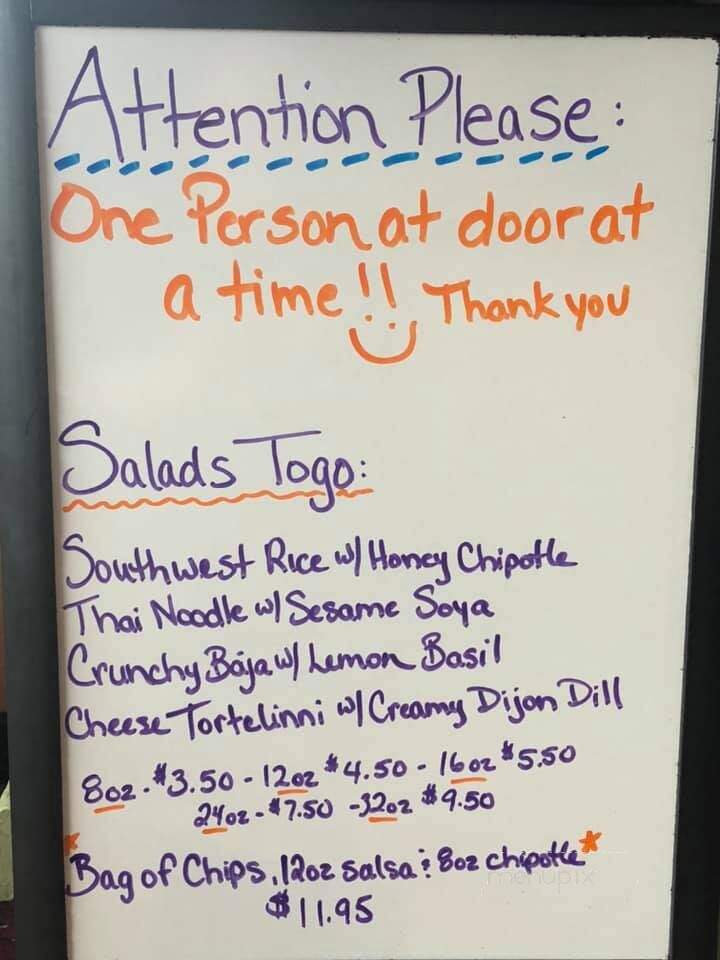 Attention Please:
One Person at door at
a time!! Thank you
Salads Togo:
Southwest Rice w/ Honey Chipotle
Thai Noodle w/ Sesame Soya
Crunchy Baja w/ Lemon Basil
Cheese Tortelinni w/ Creamy Dijon Dill
8oz - $3.50 - 12oz $4.50 - 16oz $5.50
24oz - $7.50 - 32oz $9.50
*Bag of Chips, 12oz salsa & 8oz chipotle*
menupix
$11.95